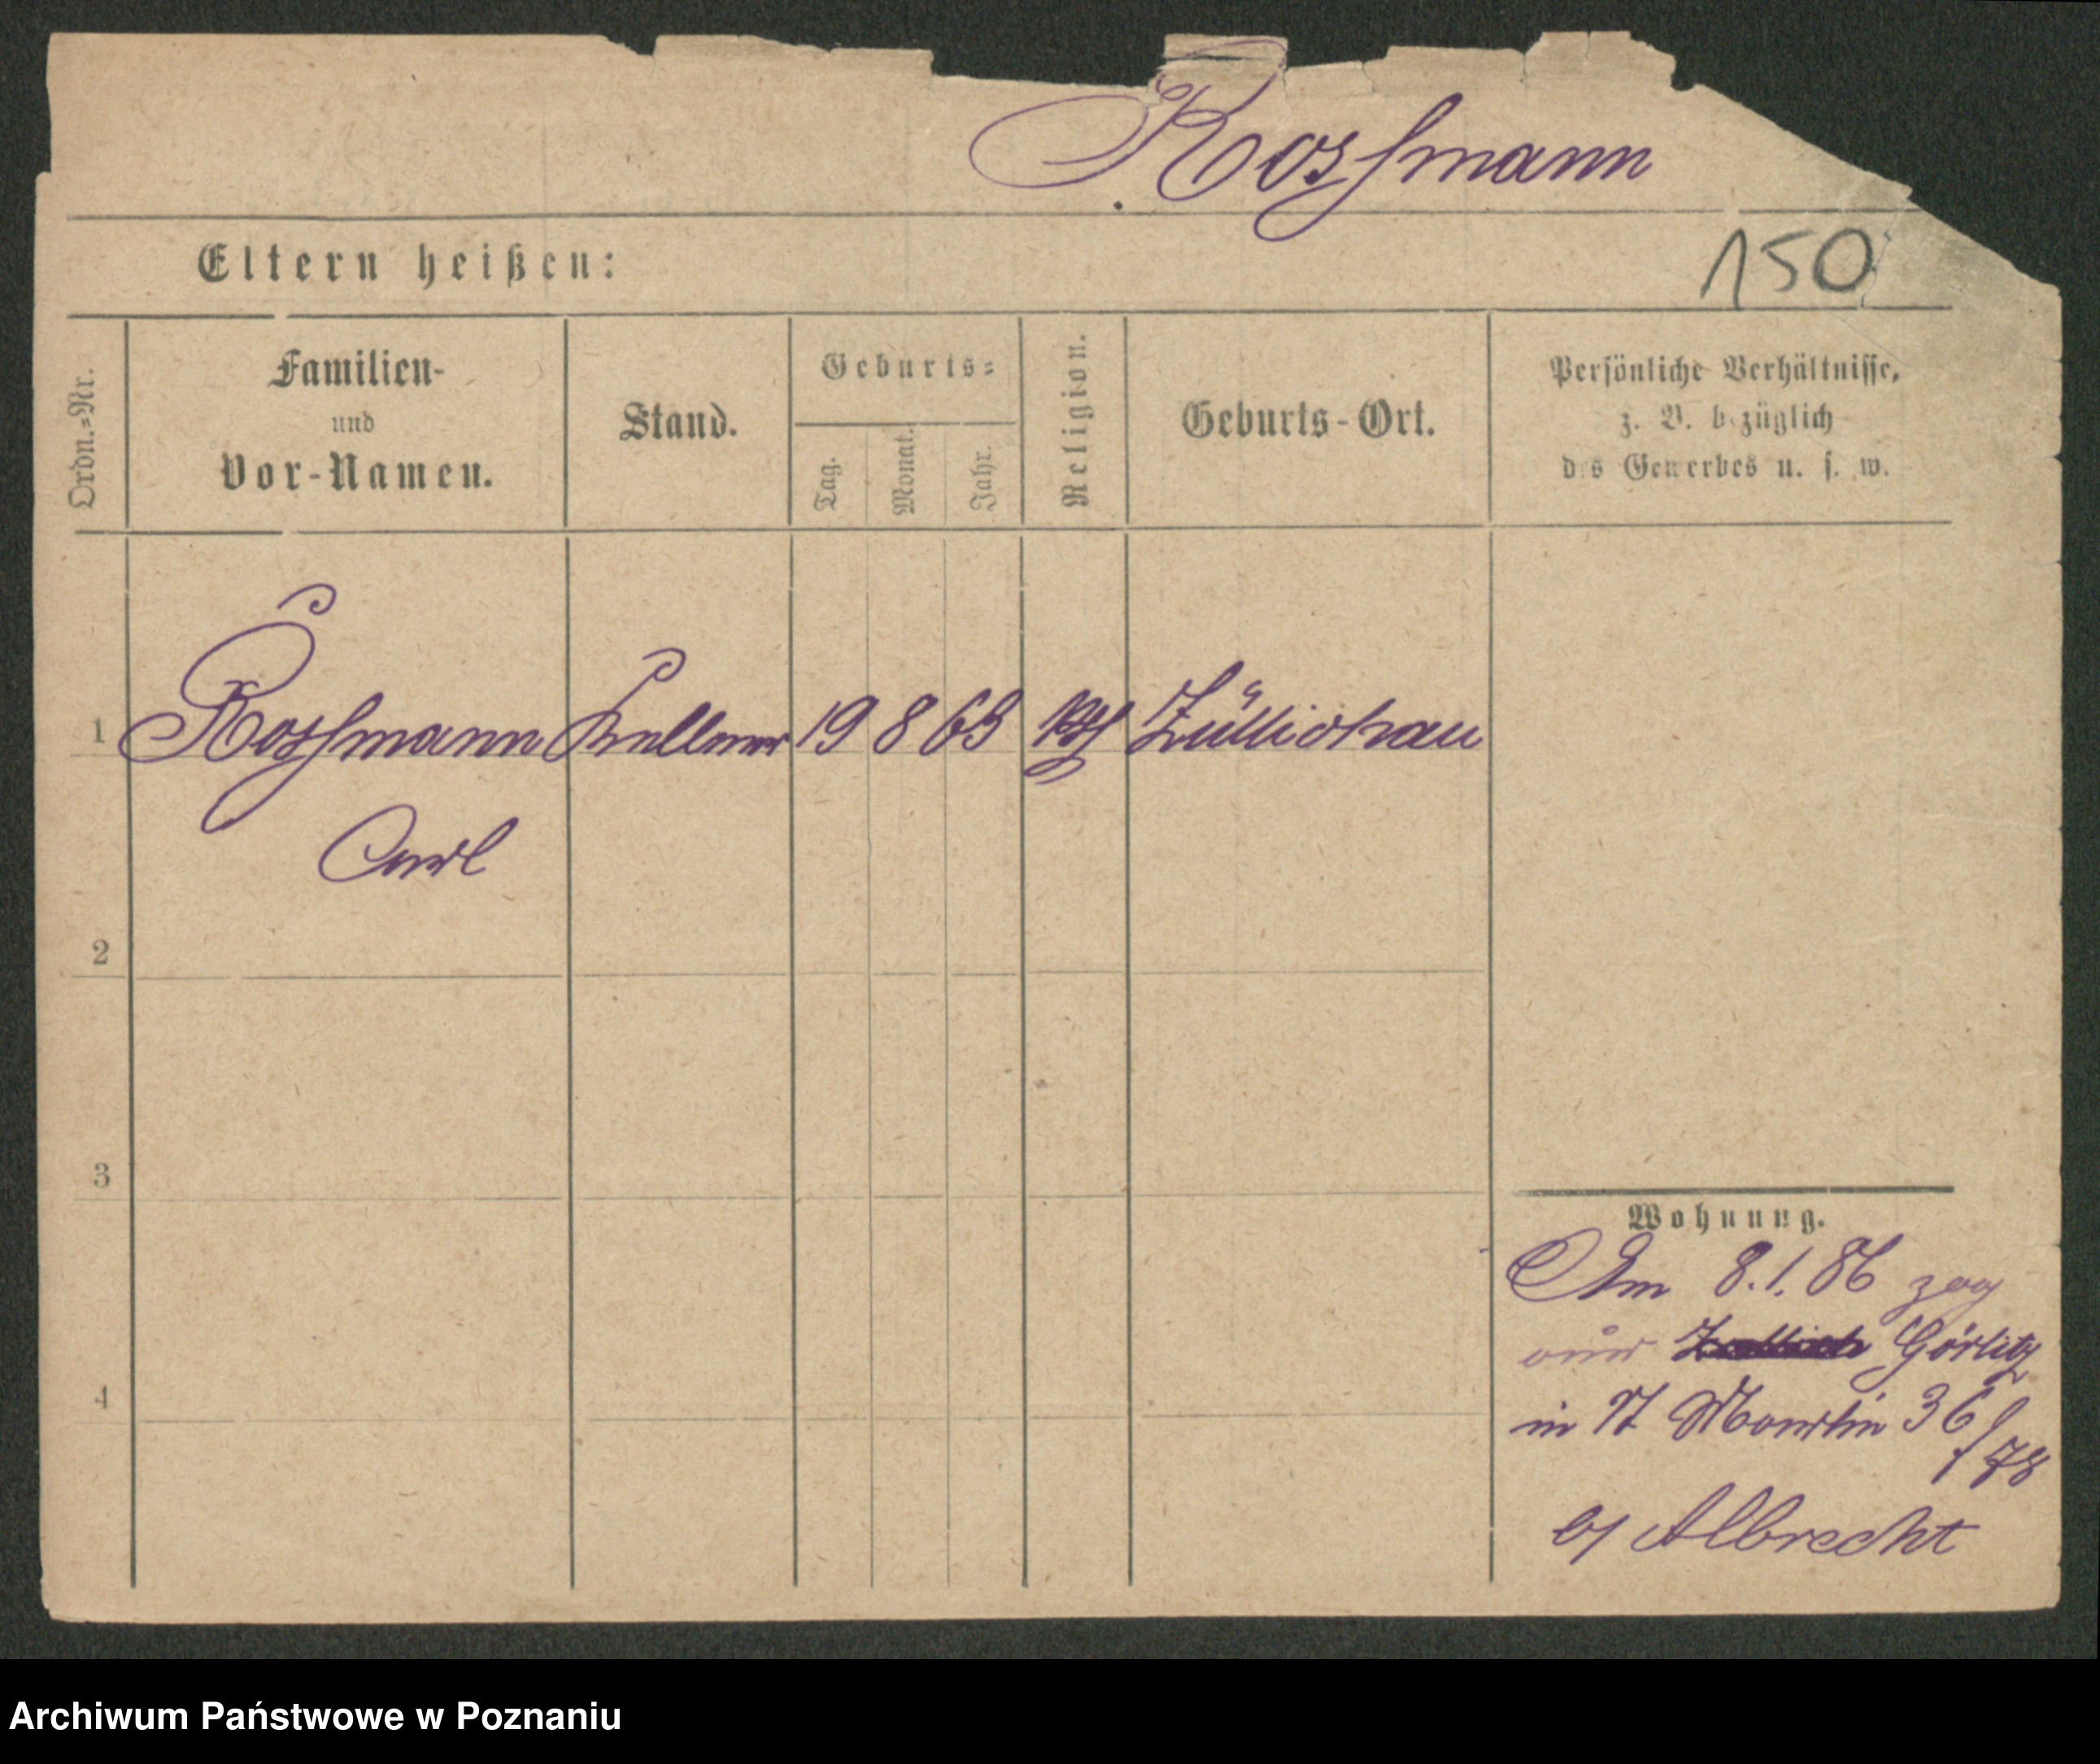 Rossmann
Eltern heißen:
150
Ordn.=Nr.
Familien-
und
Vor-Namen.
Stand.
Geburts=
Tag.
Monat.
Jahr.
Religion.
Geburts-Ort.
Persönliche Verhältnisse,
z. B. bezüglich
des Gewerbes u. s. w.
1 Rossmann Kellner 19 8 63 Züllichau
Carl
2
3
4
Wohnung.
Am 8.1.86 zog
aus Görlitz
in St Martin 36
/78
b/ Albrecht
Archiwum Państwowe w Poznaniu